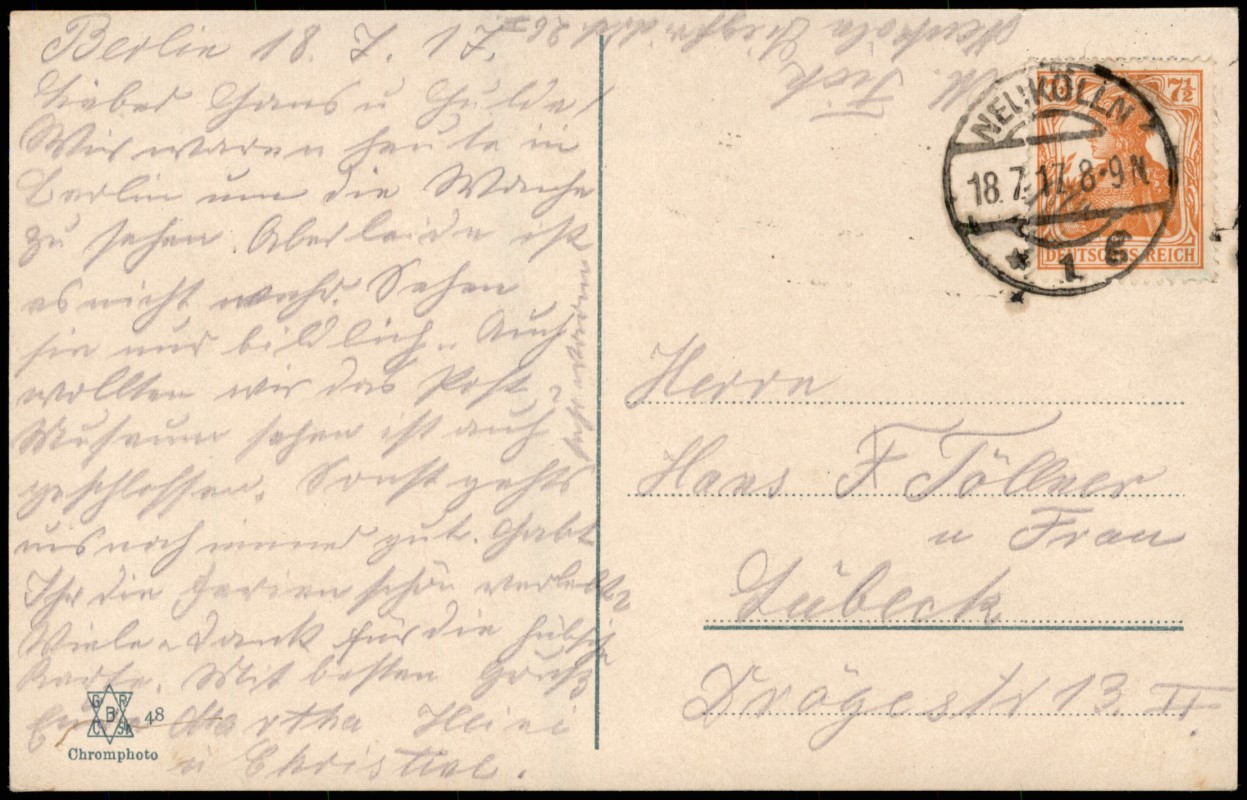 Berlin 18. 7. 17.
Lieber Hans u Hulda!
Wir waren heute in
Berlin um die Wache
zu sehen. Aber leider ist
es nicht mehr. Sehen
sie nur bildlich. Auch
wollten wir das Post
Museum sehen ist auch
geschlossen. Sonst gehts
uns noch immer gut. Habt
Ihr die Ferien schön verlebt?
Viele Dank für die hübsche
Karte. Mit besten Gruß
Martha Heini
u Christel.
M. Fick
Neukölln 26 II
NEUKÖLLN
18.7.17.8-9N.
* 1 g
7½
DEUTSCHES REICH
Herrn
Hans F Töllner
u Frau
Lübeck
Drögestr 13 II
G R
B
C SA
48
Chromphoto